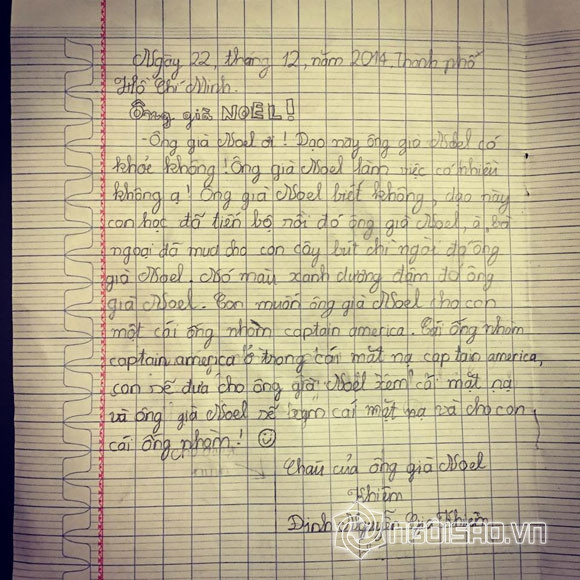 Ngày 22, tháng 12, năm 2014, Thành phố
Hồ Chí Minh.
Ông già NOEL!
-Ông già Noel ơi! Dạo này ông già Noel có
khỏe không! Ông già Noel làm việc có nhiều
không ạ! Ông già Noel biết không, dạo này
con học đã tiến bộ rồi đó ông già Noel, à, bà
ngoại đã mua cho con cây bút chì ngòi đó ông
già Noel. Nó màu xanh dương đậm đó ông
già Noel. Con muốn ông già Noel cho con
một cái ống nhòm captain america. Cái ống nhòm
captain america ở trong cái mặt nạ captain america,
con sẽ đưa cho ông già Noel xem cái mặt nạ
và ông già Noel sẽ xem cái mặt nạ và cho con
cái ống nhòm! ☺
Cháu của ông già Noel
Khiêm
Đinh Nguyễn Gia Khiêm
NGOISAO.VN